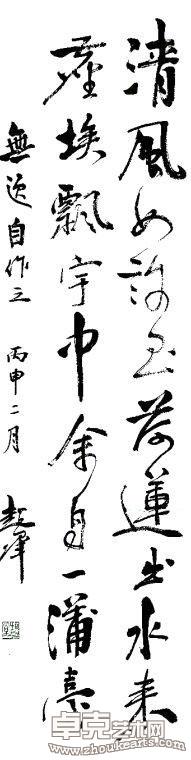 清風如荷蓮出水来
埃飄宇中余自一蒲
無逸自作之 丙申二月
卓克艺术网
www.zhoukearts.com